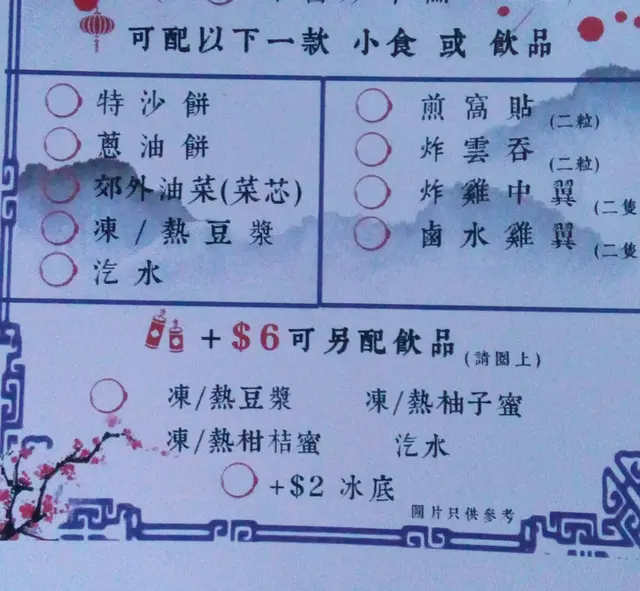 可配以下一款 小食 或 飲品
特沙餅
蔥油餅
郊外油菜(菜芯)
凍/熱豆漿
汽水
煎窩貼(二粒)
炸雲吞(二粒)
炸雞中翼(二隻
鹵水雞翼(二隻
+$6可另配飲品(請圈上)
凍/熱豆漿 凍/熱柚子蜜
凍/熱柑桔蜜 汽水
+$2 冰底
圖片只供參考